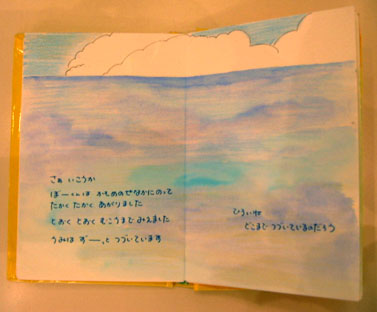 さぁ いこうか
ぼーくんは かもめのせなかにのって
たかく たかく あがりました
とおく とおく むこうまで みえました
うみは ずーっと つづいています
ひろいね
どこまで つづいているのだろう